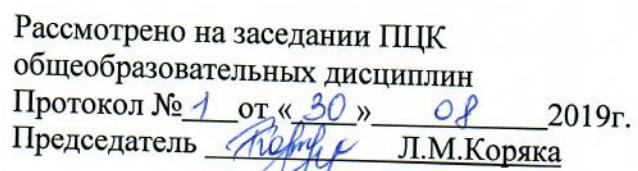 Рассмотрено на заседании ПЦК
общеобразовательных дисциплин
Протокол № 1 от « 30 » 08 2019г.
Председатель Л.М.Коряка